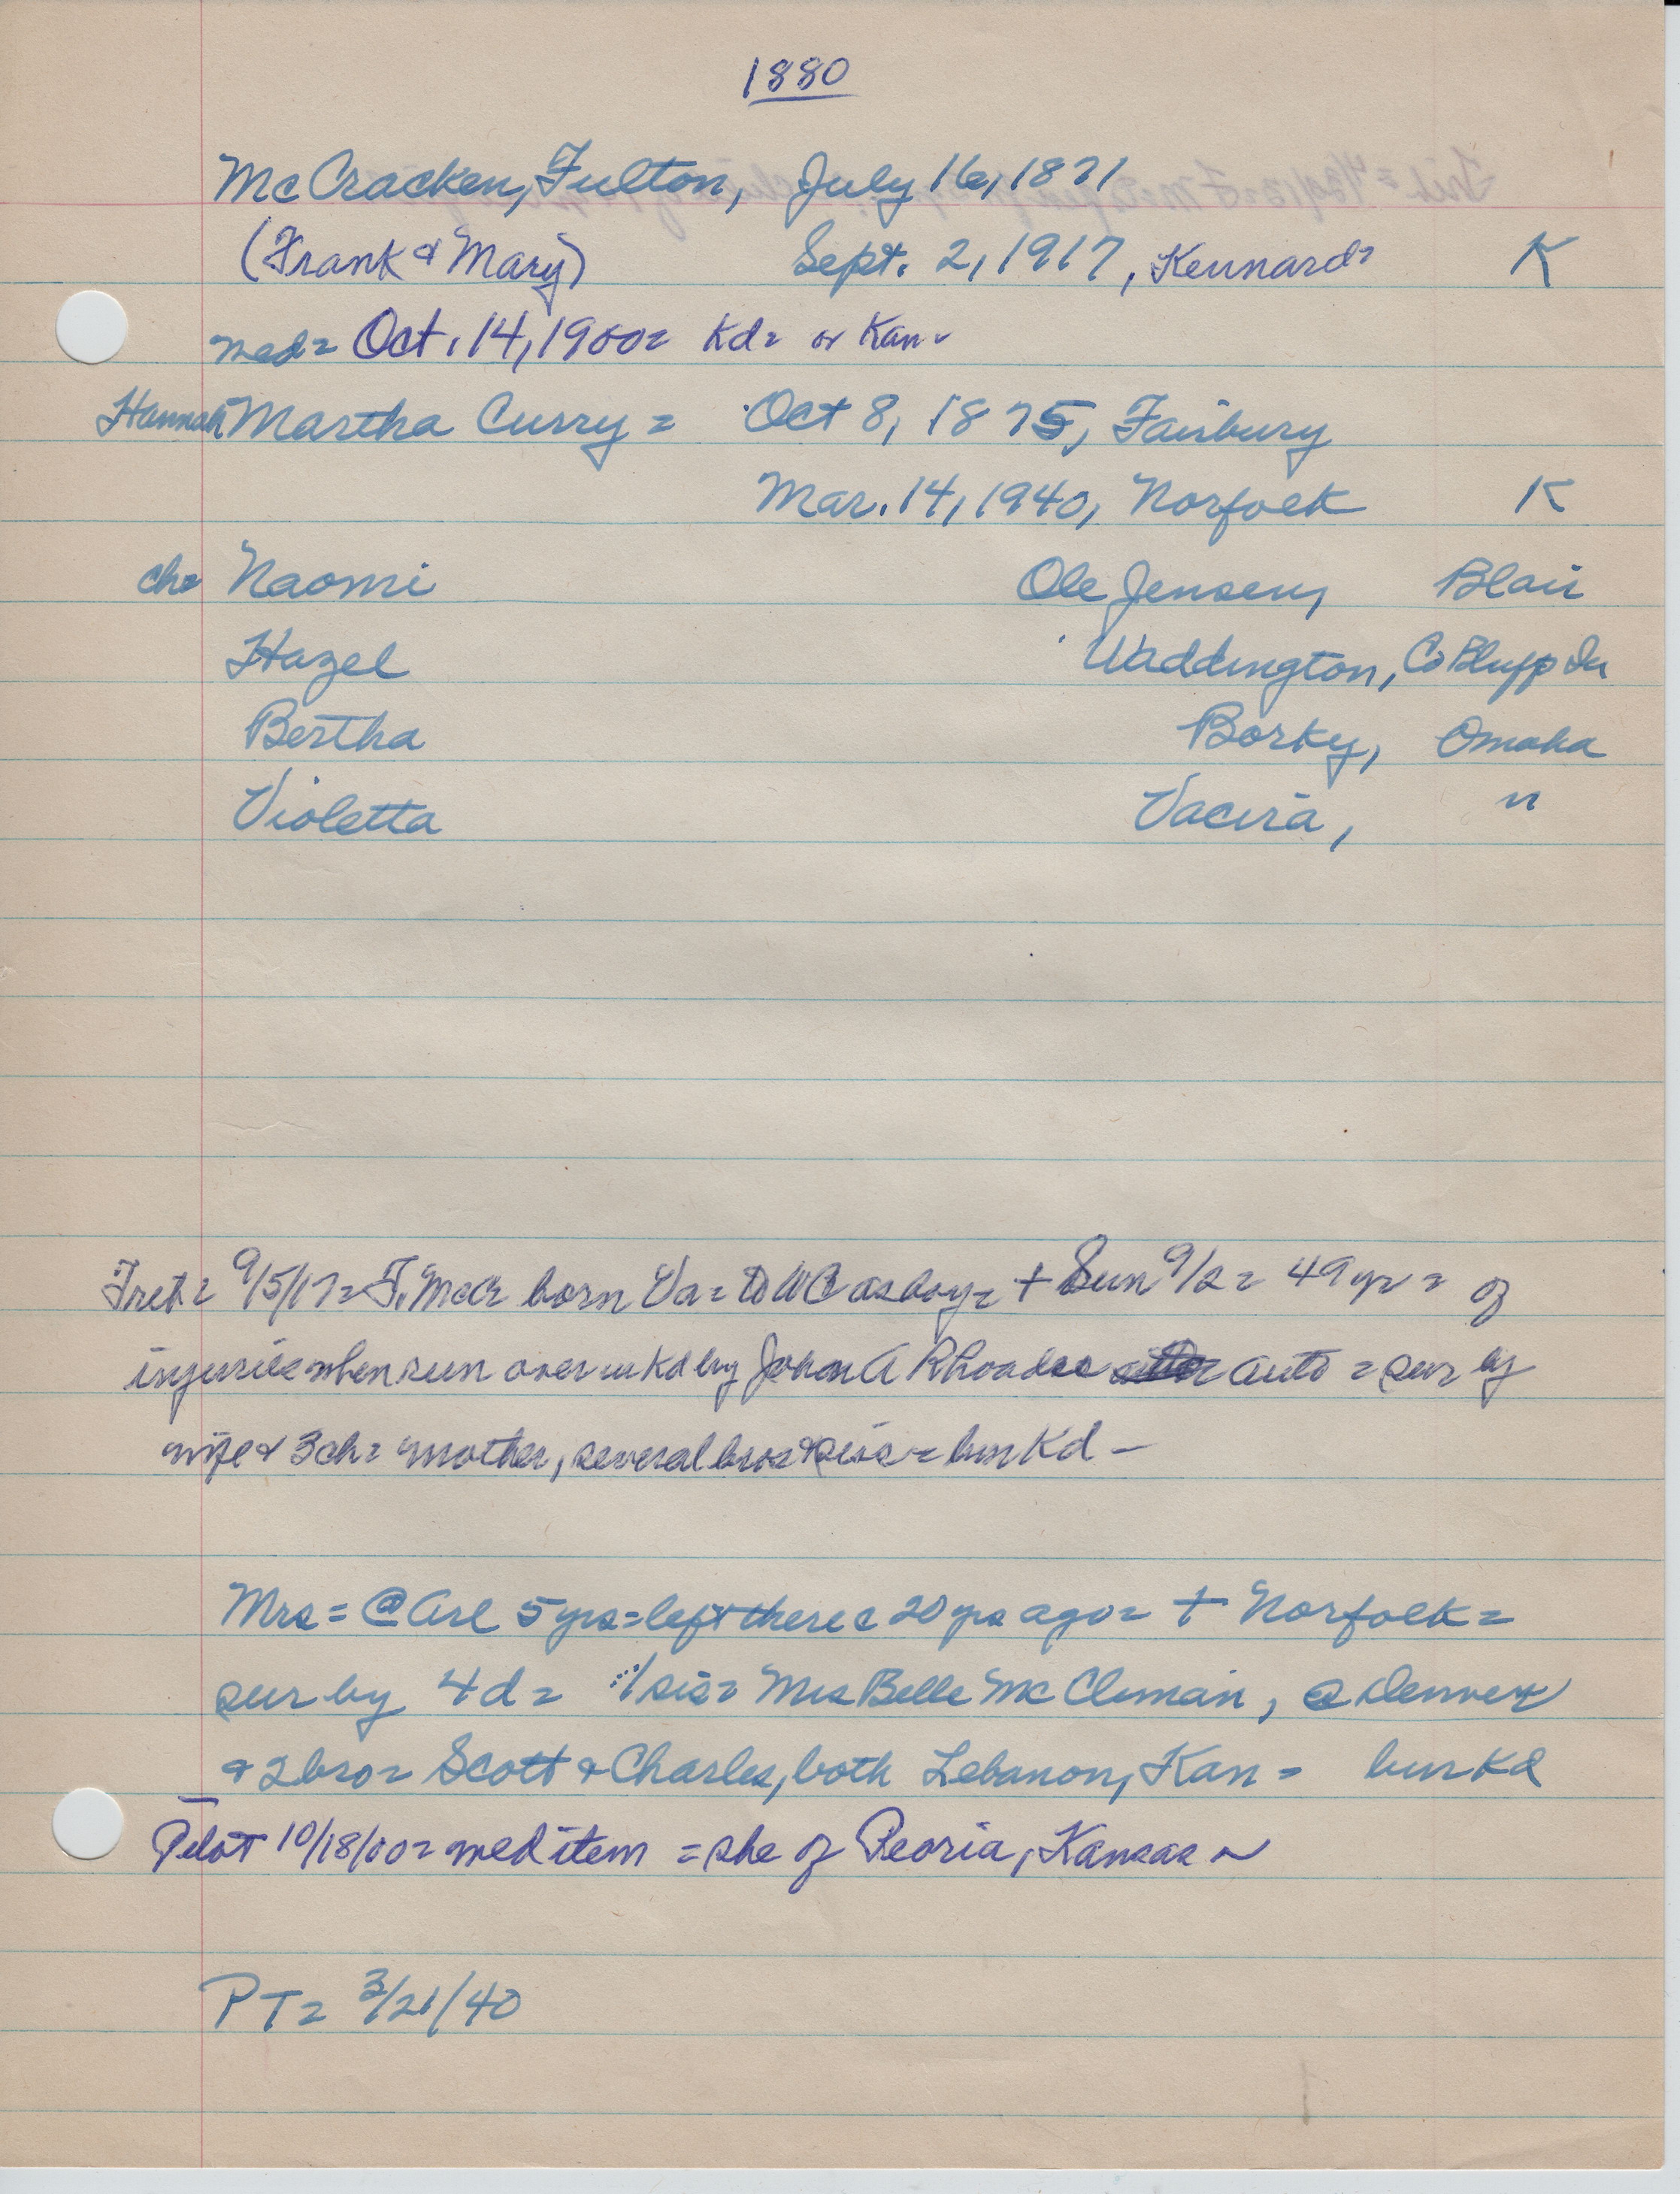 1880
McCracken, Fulton, July 16, 1871
(Frank & Mary) Sept. 2, 1917, Kennard= K
med= Oct. 14, 1900= Kd= or Kan-
Hannah Martha Curry = Oct 8, 1875, Fairbury
Mar. 14, 1940, Norfolk K
ch= Naomi Ole Jensen, Blair
Hazel Waddington, Co Bluff Ia
Bertha Borky, Omaha
Violetta Vacira, "
9/5/17= F. McC= born Va= to WC as boy= + Sun 9/2= 49 yr = of
injuries when run over in Kd by John A Rhoades auto = sur by
wife & 3 ch= mother, several bros & sis = bur Kd -
Mrs = @ Arl 5 yrs = left there c 20 yrs ago = + Norfolk =
sur by 4 d = 1 sis= Mrs Belle Mc Climan, @ Denver
& 2 bro= Scott & Charles, both Lebanon, Kan = bur Kd
Pilot 10/18/00= med item = she of Peoria, Kansas ~
PT= 3/21/40